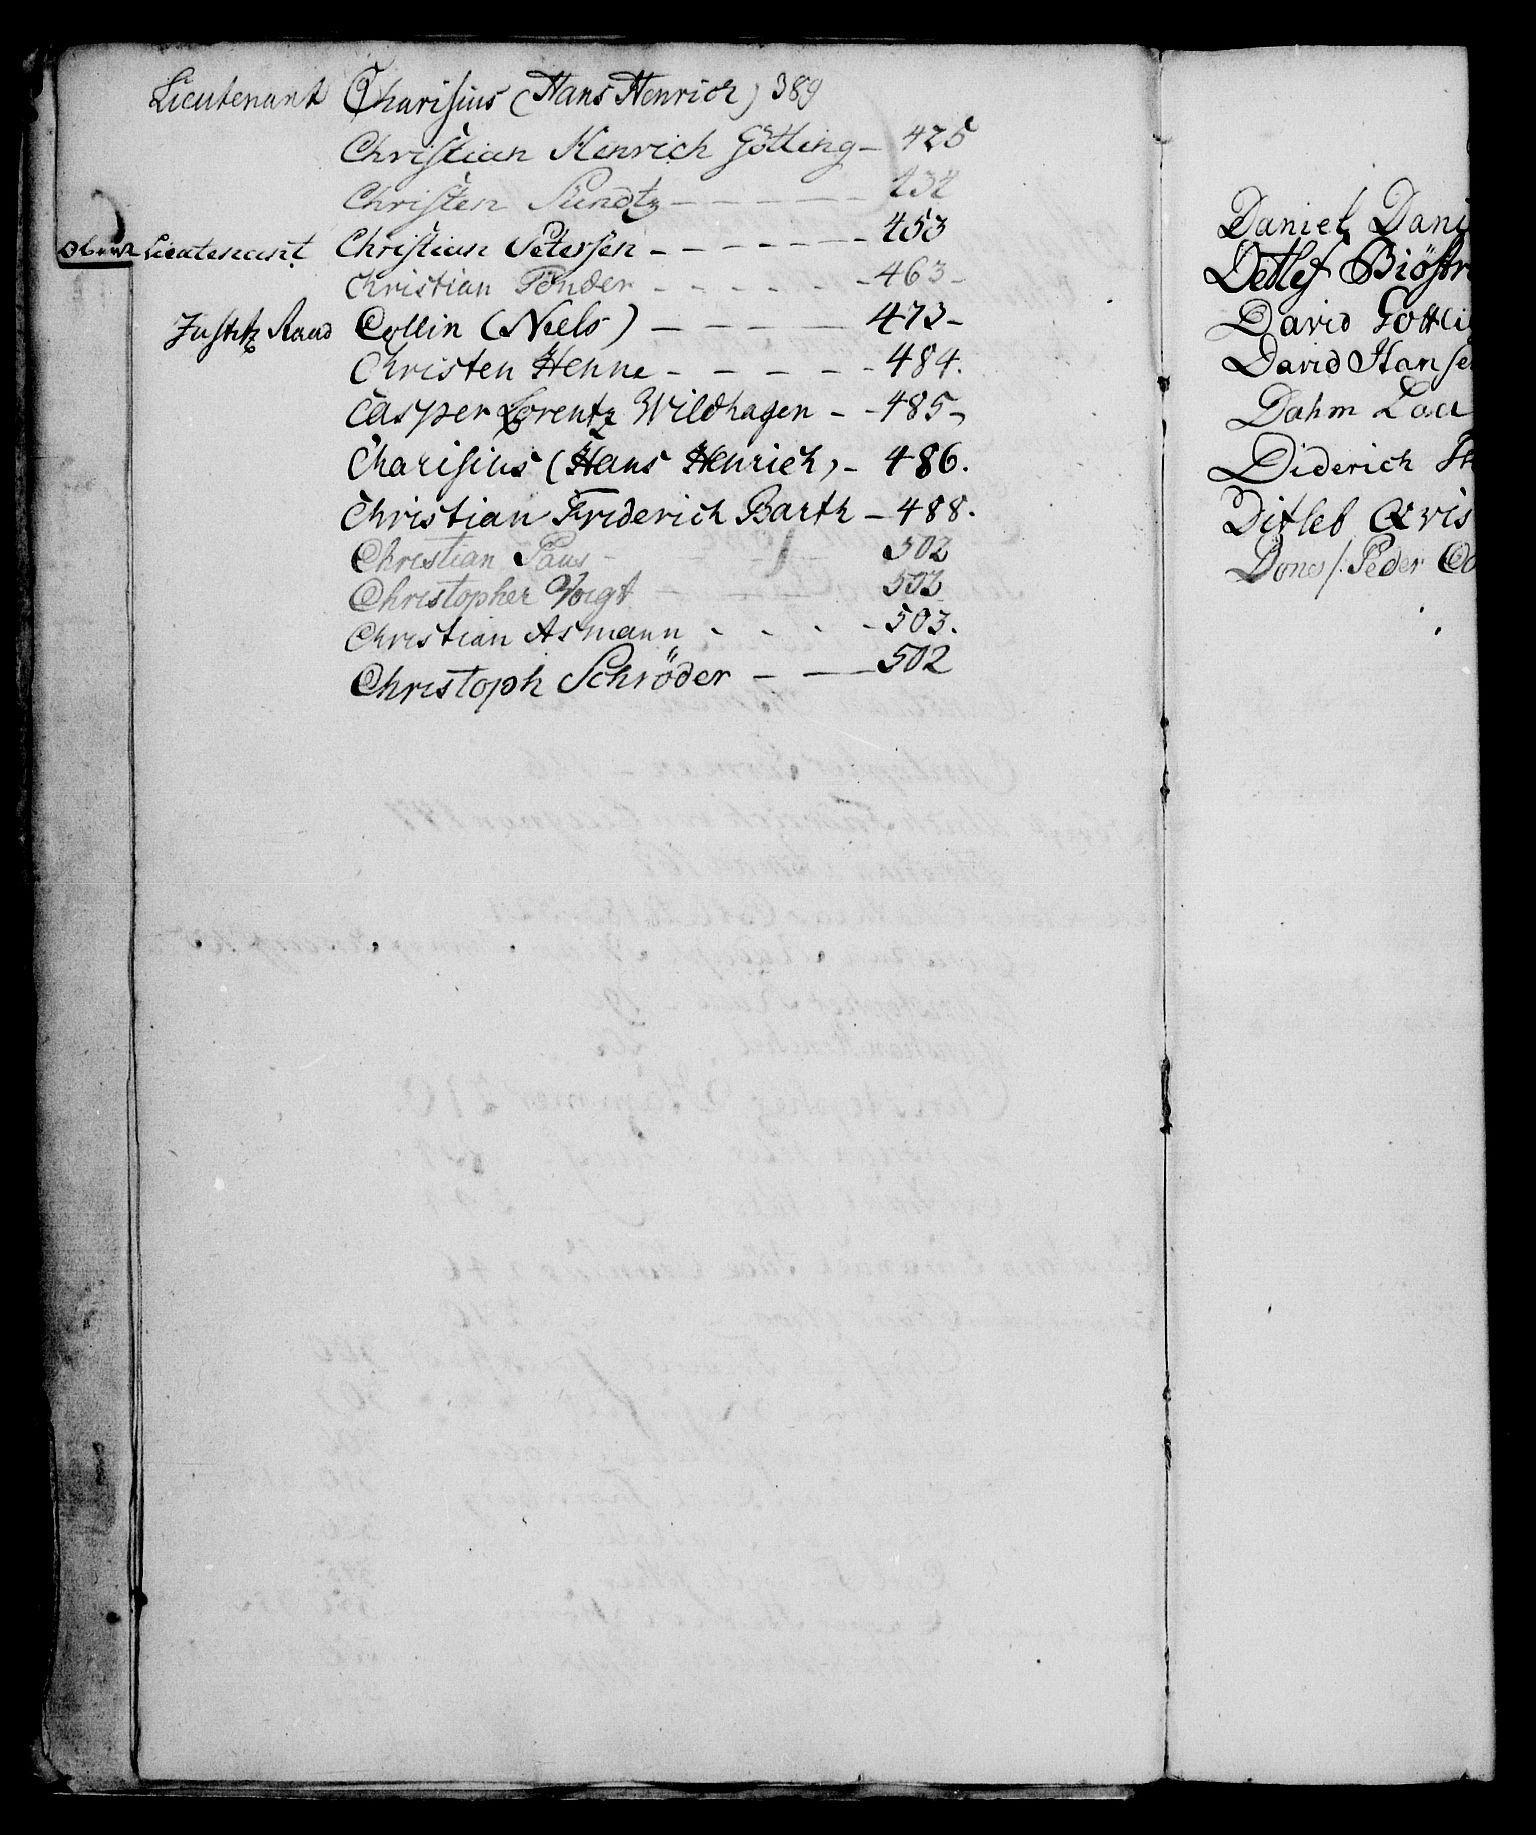 Lieutenant Charisius (Hans Henrich) 389
Christian Henrich Götting - 425
Christen Sundtz - - - - - 432
Lieutenant Christian Petersen - - - - - - 453
Christian Tönder - - - - - 463 -
Justitz Raad Collin (Niels) - - - - 473 -
Christen Henne - - - - - 484.
Casper Lorentz Wildhagen - - 485 -
Charisius (Hans Henrich) - 486.
Christian Friderich Barth - 488.
Christian Paus - 502
Christopher Voigt - - - 502
Christian Asmann - - - - 503.
Christoph Schröder - - 502
Daniel Dani
Detlef Biöstr
David Gottli
David Hanse
Dahm
Diderich
Ditleb
Peder